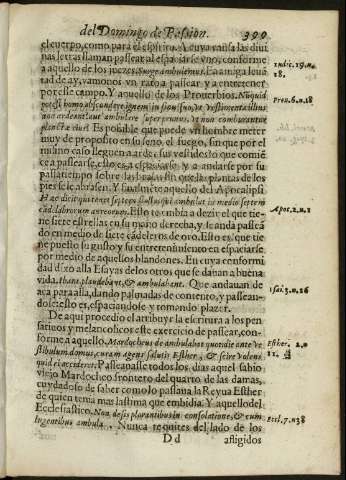 del Domingo de Passion. 399
el cuerpo, como para el espiritu. A cuya causa las diui
nas letras llaman passear al esparzirse vno, conforme
a aquello de los juezes. Surge ambulemus. Ea amiga leuã
tad de ay, vamonos vn rato a passear y a entretener
por esse campo. Y aquello de los Prouerbios. Nũquid
potest homo abscondere ignem in sinu suo, vt vestimenta illius
non ardeant? aut ambulare super prunas, vt non comburantur
plantæ eius? Es posible que puede vn hombre meter
muy de proposito en su seno, el fuego, sin que por el
mismo caso lleguen a arder sus vestidos? o que comiẽ
ce a passearse, esto es a esparzirse y a andarse por su
passatiempo sobre las brasas, sin que las plantas de los
pies se le abrasen. Y finalmẽte aquello del Apocalipsi
Hæc dicit qui tenet septem stellas, qui ambulat in medio septem
cãdelabrorum aureorum. Esto tambiẽ a dezir el que tie-
ne siete estrellas en su mano derecha, y se anda passeã
do en medio de siete cãdeleros de oro. Esto es, que tie
ne puesto su gusto y su entretenimiento en espaciarse
por medio de aquellos blandones. En cuya conformi
dad dixo alla Esayas de los otros que se dauan a buena
vida. Ibant, plaudebant, & ambulabant. Que andauan de
aca para alla, dando palmadas de contento, y passean-
dose, esto es, espaciandose y tomando plazer.
De aqui procedio el atribuyr la escritura a los pen
satiuos y melancolicos este exercicio de passear, con-
forme a aquello. Mardochæus de ambulabat quotidie ante ve
stibulum domus, curam agens salutis Esther, & scire volens
quid ei accederet. Passeauase todos los dias aquel sabio
viejo Mardocheo frontero del quarto de las damas,
cuydadoso de saber como lo passaua la Reyna Esther
de quien tenia mas lastima que embidia. Y aquello del
Ecclesiastico. Non desis plorantibus in consolatione, & cum
lugentibus ambula. Nunca te quites del lado de los
D d afligidos
Iudic. 19. n.
28.
Prou. 6. n. 28
Apoc. 2. n. 1
Isai. 3. n. 16
Esther. 2. n
11.
Eccl. 7. n 38